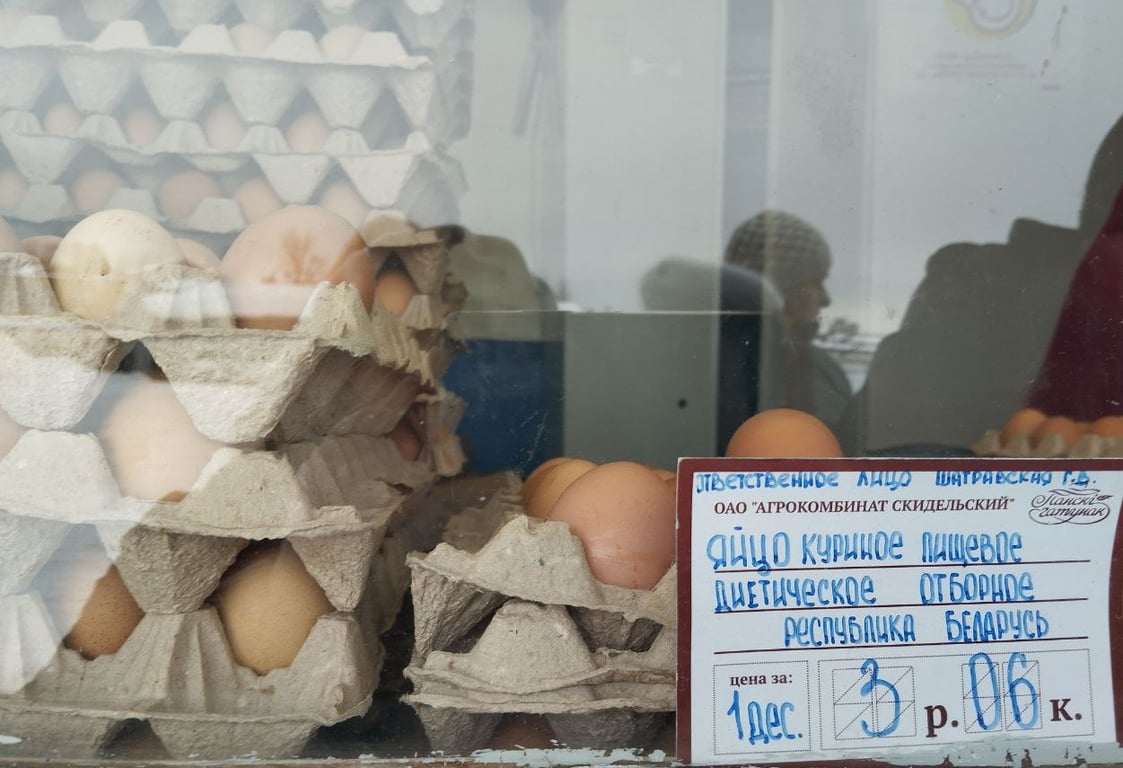 ответственное лицо Шатравская Г.В.
ОАО "АГРОКОМБИНАТ СКИДЕЛЬСКИЙ"
Панскі гатунак
ЯЙЦО КУРИНОЕ ПИЩЕВОЕ
ДИЕТИЧЕСКОЕ ОТБОРНОЕ
РЕСПУБЛИКА БЕЛАРУСЬ
цена за:
1 дес. 3 р. 06 к.